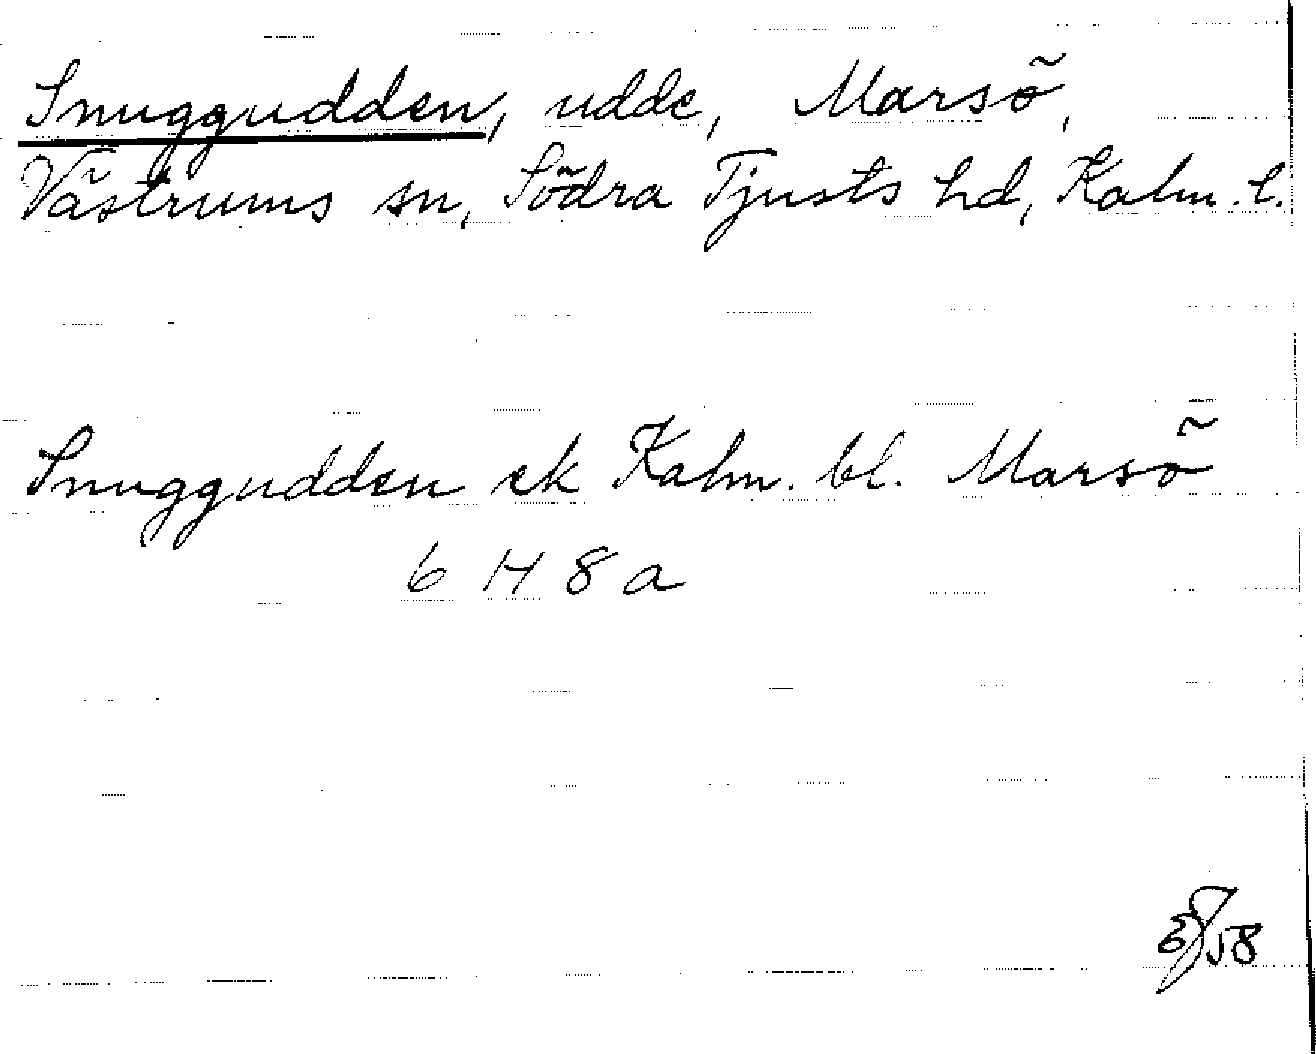 Snuggudden, udde, Marsö,
Västrums sn, Södra Tjusts hd, Kalm. l.
Snuggudden ek Kalm. bl. Marsö
6 H 8 a
58